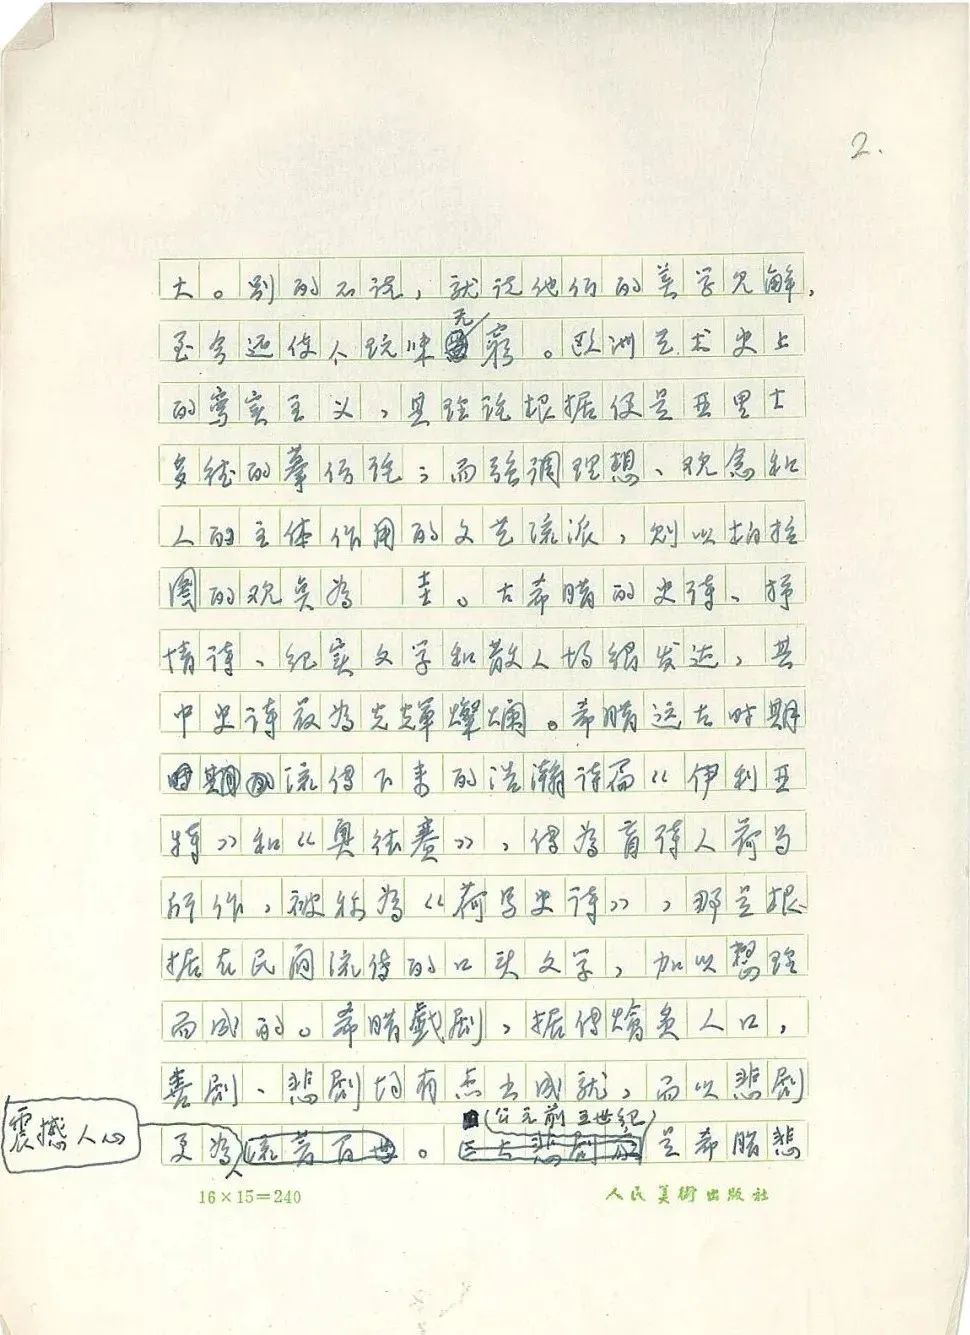 2.
大。别的不说，就说他们的美学见解，
至今还使人玩味无穷。欧洲艺术史上
的写实主义，其理论根据便是亚里士
多德的摹仿论；而强调理想、观念和
人的主体作用的文艺流派，则以柏拉
图的观点为圭。古希腊的史诗、抒
情诗、纪实文学和散文均很发达，其
中史诗最为光辉灿烂。希腊远古时期
时期的流传下来的浩瀚诗篇《伊利亚
特》和《奥德赛》，传为盲诗人荷马
所作，被称为《荷马史诗》，那是根
据在民间流传的口头文学，加以整理
而成的。希腊戏剧，据传脍炙人口，
喜剧、悲剧均有杰出成就，而以悲剧
(公元前五世纪)
震撼人心
更为流芳百世。是希腊悲
16×15=240
人民美術出版社